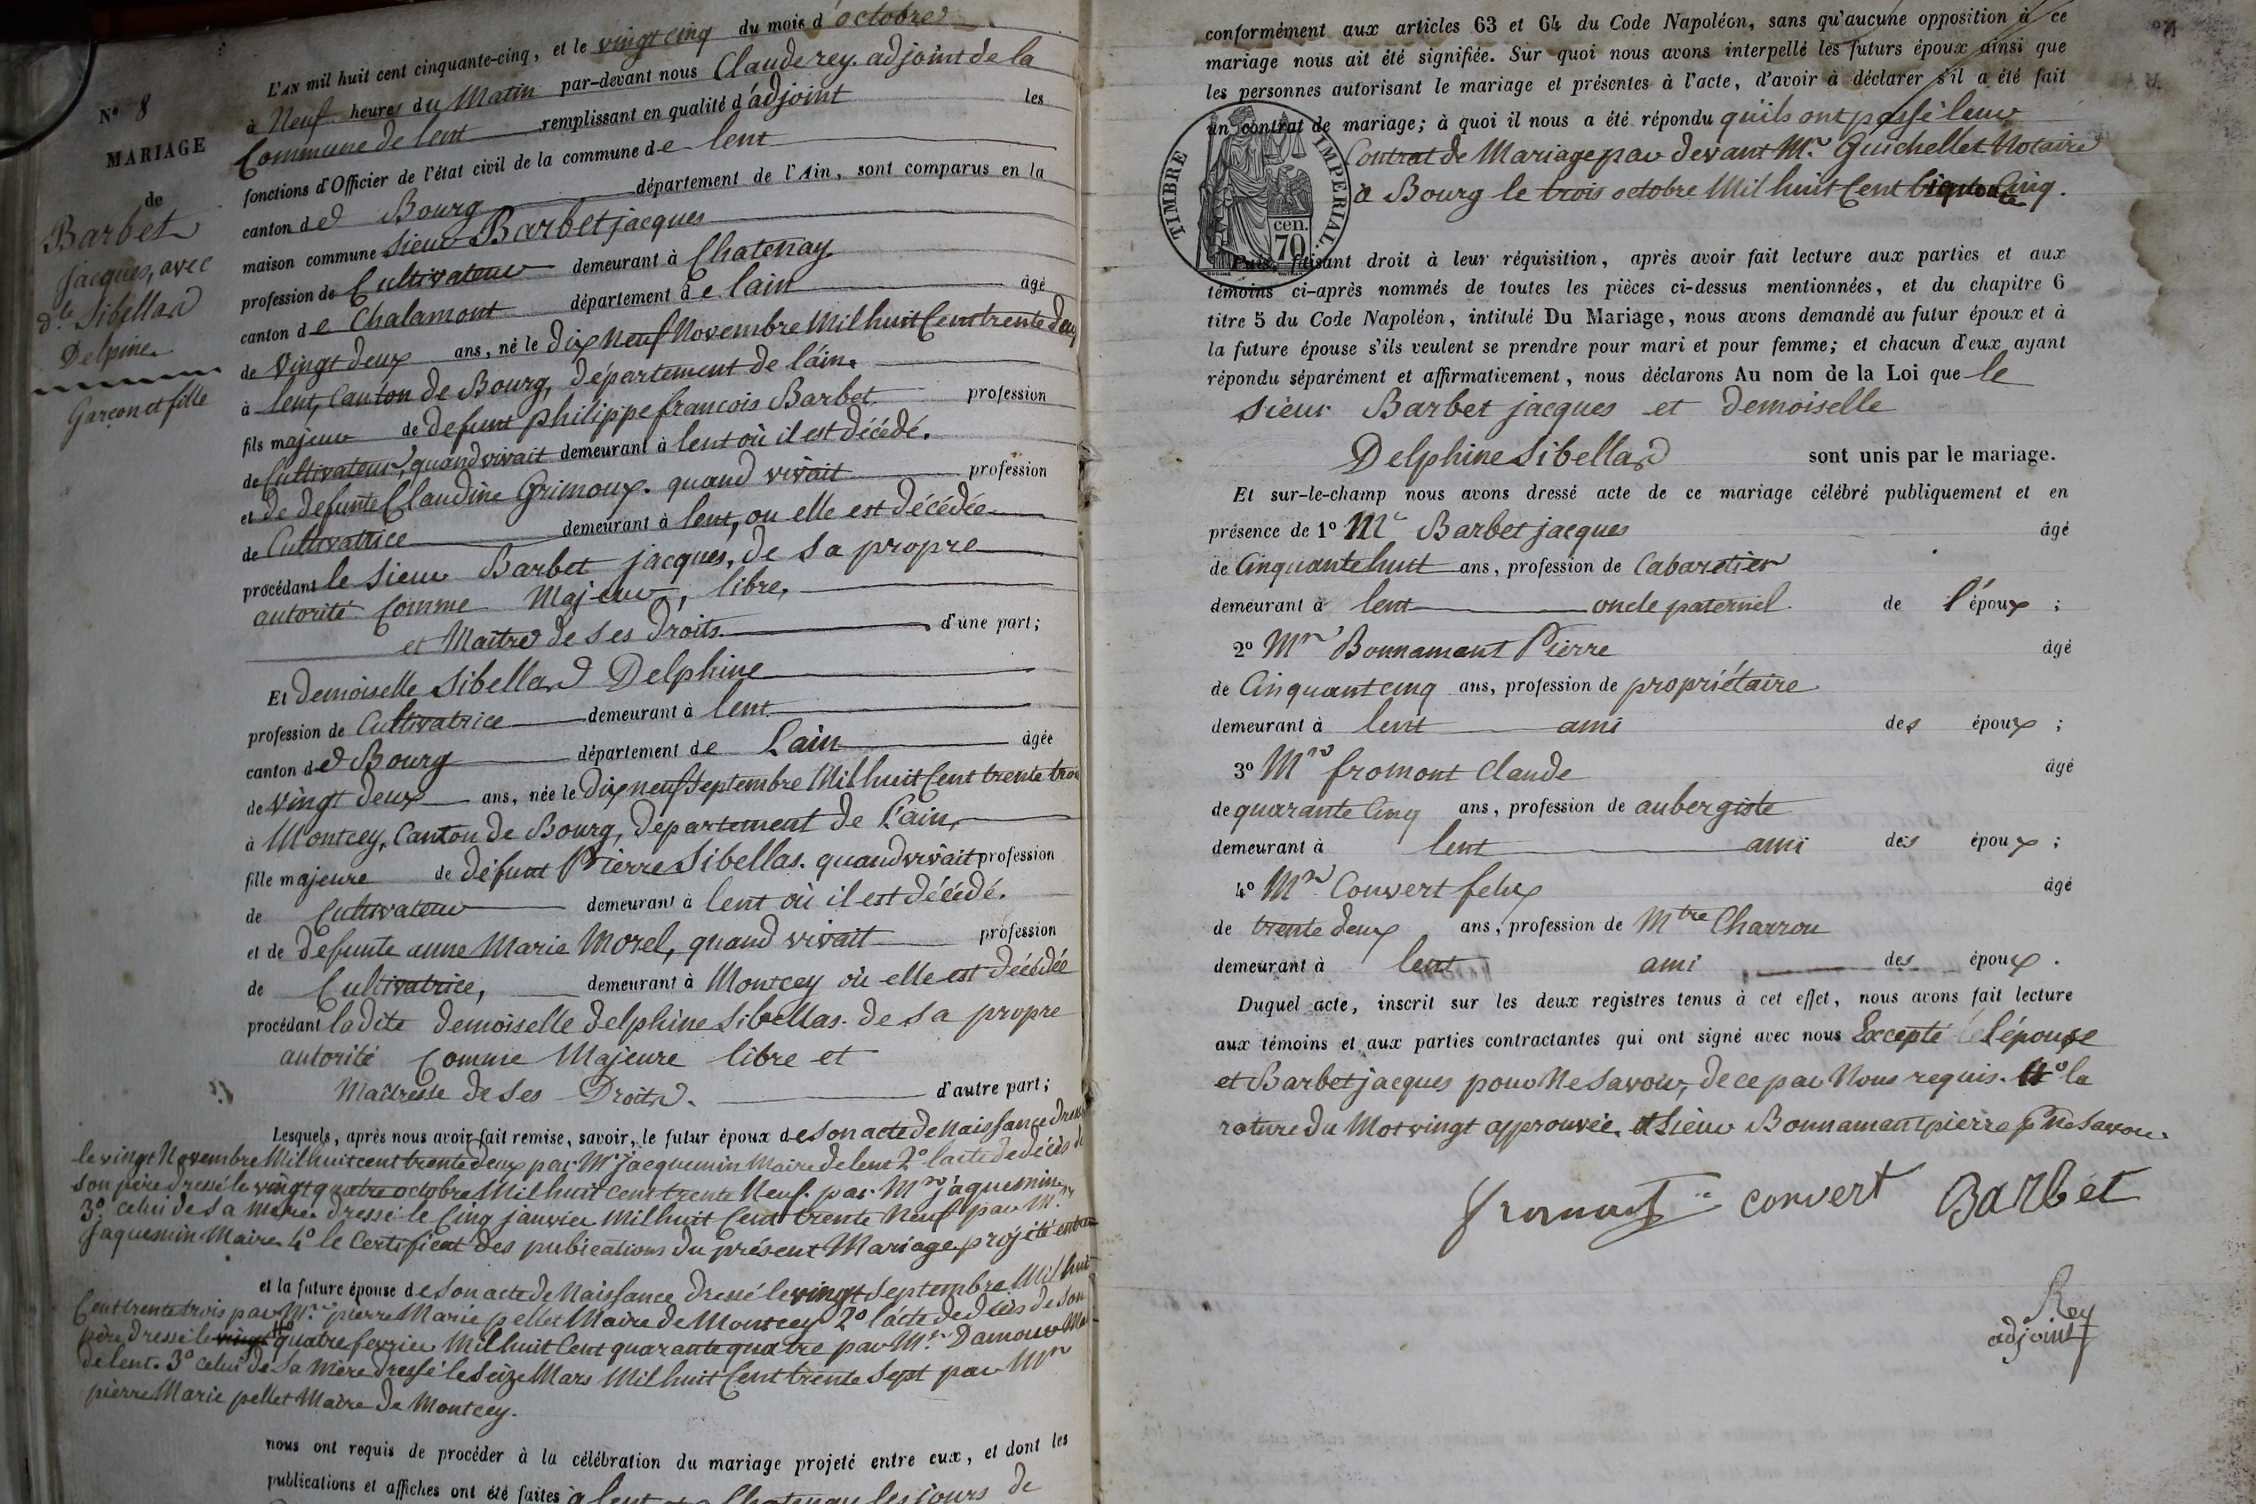 N° 8
MARIAGE
de
Barbet
jacques, avec
dlle Sibellas
Delpine.
Garçon et fille
L'AN mil huit cent cinquante-cinq, et le vingt cinq du mois d'octobre
à Neuf heures du Matin par-devant nous Claude rey. adjoint de la
Commune de lent remplissant en qualité d'adjoint les
fonctions d'Officier de l'état civil de la commune de lent
canton de Bourg département de l'Ain, sont comparus en la
maison commune sieur Barbet jacques
profession de Cultivateur demeurant à Chatenay
canton de Chalamont département de lain âgé
de vingt deux ans, né le dix Neuf Novembre Mil huit Cent trente deux
à lent, Canton de Bourg, département de l'ain.
fils majeur de defunt philippe francois Barbet profession
de Cultivateur, quand vivait demeurant à lent où il est décédé.
et de defunte Claudine Grimoux. quand vivait profession
de Cultivatrice demeurant à lent, ou elle est décédée
procédant le sieur Barbet jacques, de sa propre
autorité Comme Majeur, libre,
et Maître de ses droits d'une part;
Et demoiselle Sibellas Delphine
profession de Cultivatrice demeurant à lent
canton de Bourg département de Lain âgée
de vingt deux ans, née le dix neuf septembre Mil huit Cent trente trois
à Montcey, Canton de Bourg, département de Lain,
fille majeure de défunt Pierre Sibellas. quand vivait profession
de Cultivateur demeurant à lent où il est décédé.
et de defunte anne Marie Morel, quand vivait profession
de Cultivatrice, demeurant à Montcey où elle est décédée
procédant ladite demoiselle delphine Sibellas. de sa propre
autorité Comme Majeure libre et
Maîtresse de ses Droits. d'autre part;
Lesquels, après nous avoir fait remise, savoir, le futur époux de son acte de Naissance dressé
le vingt Novembre Mil huit cent trente deux par Mr jacquemin Maire de lent 2° l'acte de décès de
son père dressé le vingt quatre octobre Mil huit cent trente Neuf. par Mr jaquemin
3° celui de sa mère dressé le Cinq janvier Mil huit Cent trente Neuf par Mr
jaquemin Maire 4° le Certificat des publications du présent Mariage projété
et la future épouse de son acte de Naissance dressé le vingt septembre Mil huit
Cent trente trois par Mr pierre Marie pellet Maire de Montcey 2° l'acte de décès de son
père dressé le vingt quatre fevrier Mil huit Cent quarante quatre par Mr Damour
de lent. 3° celui de sa mère dressé le seize Mars Mil huit Cent trente sept par Mr
pierre Marie pellet Maire de Montcey.
nous ont requis de procéder à la célébration du mariage projeté entre eux, et dont les
publications et affiches ont été faites à lent et à Chatenay les jours de
conformément aux articles 63 et 64 du Code Napoléon, sans qu'aucune opposition à ce
mariage nous ait été signifiée. Sur quoi nous avons interpellé les futurs époux ainsi que
les personnes autorisant le mariage et présentes à l'acte, d'avoir à déclarer s'il a été fait
un contrat de mariage; à quoi il nous a été répondu qu'ils ont passé leur
Contrat de Mariage par devant Mr Guichellet Notaire
à Bourg le trois octobre Mil huit Cent Cinquante Cinq.
TIMBRE IMPERIAL.
cen.
70
Puis, faisant droit à leur réquisition, après avoir fait lecture aux parties et aux
témoins ci-après nommés de toutes les pièces ci-dessus mentionnées, et du chapitre 6
titre 5 du Code Napoléon, intitulé Du Mariage, nous avons demandé au futur époux et à
la future épouse s'ils veulent se prendre pour mari et pour femme; et chacun d'eux ayant
répondu séparément et affirmativement, nous déclarons Au nom de la Loi que le
sieur Barbet jacques et demoiselle
Delphine Sibellas sont unis par le mariage.
Et sur-le-champ nous avons dressé acte de ce mariage célébré publiquement et en
présence de 1° Mr Barbet jacques âgé
de Cinquante huit ans, profession de Cabaretier
demeurant à lent oncle paternel de l'époux;
2° Mr Bonnamant Pierre âgé
de Cinquant cinq ans, profession de propriétaire
demeurant à lent ami des époux;
3° Mr fromont Claude âgé
de quarante Cinq ans, profession de aubergiste
demeurant à lent ami des époux;
4° Mr Convert felix âgé
de trente deux ans, profession de Mtre Charron
demeurant à lent ami des époux.
Duquel acte, inscrit sur les deux registres tenus à cet effet, nous avons fait lecture
aux témoins et aux parties contractantes qui ont signé avec nous Excepté l'épouse
et Barbet jacques pour Ne savoir, de ce par Nous requis. la
rature du Mot vingt approuvée. et sieur Bonnamant pierre p. Ne savoir
fromont convert Barbet
Rey
adjoint